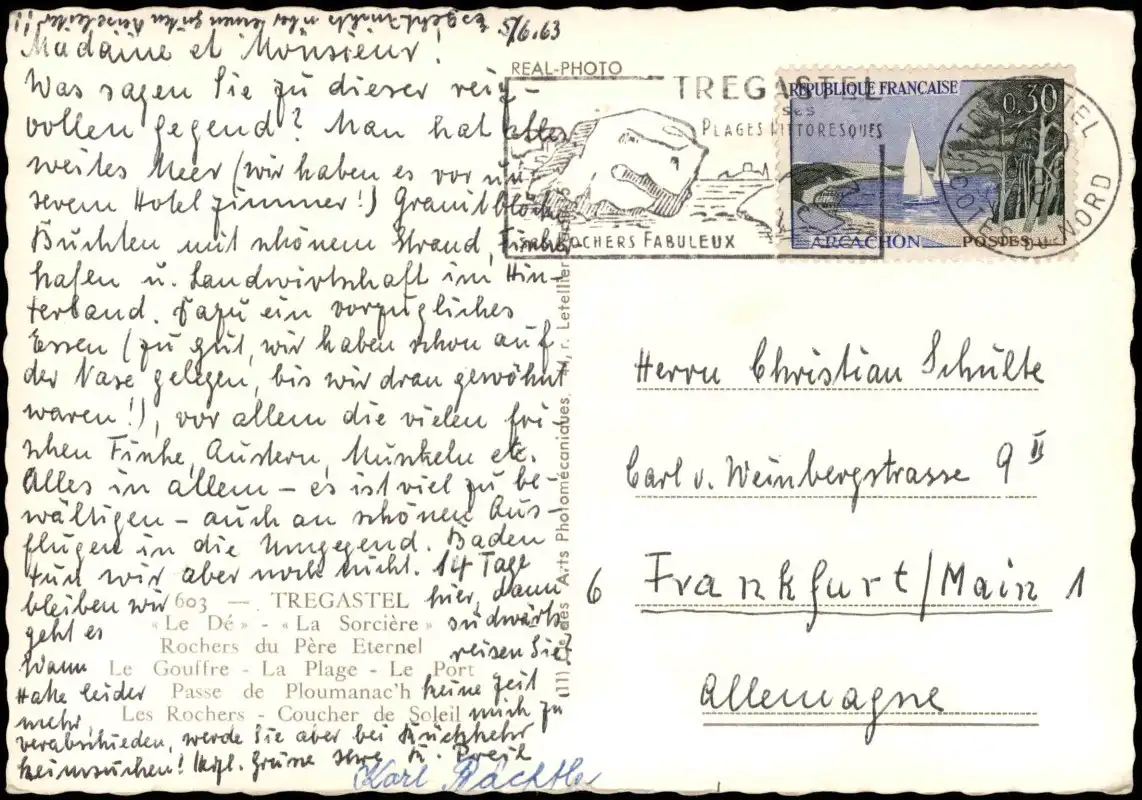 Es geht nichts über einen guten Reiseleiter!!!
5/6.63
Madame et Monsieur!
Was sagen Sie zu dieser reiz-
vollen Gegend? Man hat alles
weites Meer (wir haben es vor un-
serem Hotelzimmer!) Granitblöcke
Buchten mit schönem Strand, Fischer-
hafen u. Landwirtschaft im Hin-
terland. Dazu ein vorzügliches
Essen (zu gut, wir haben schon auf
der Nase gelegen, bis wir dran gewöhnt
waren!), vor allem die vielen fri
schen Fische, Austern, Muscheln etc.
Alles in allem – es ist viel zu be-
wältigen – auch an schönen Aus-
flügen in die Umgegend. Baden
tun wir aber noch nicht. 14 Tage
bleiben wir hier, dann
geht es südwärts
Wann reisen Sie?
Hatte leider keine Zeit
mehr, mich zu
verabschieden, werde Sie aber bei Rückkehr
heimsuchen! Hzl. Grüsse Ihre
Karl
603 — TREGASTEL
« Le Dé » - « La Sorcière »
Rochers du Père Eternel
Le Gouffre - La Plage - Le Port
Passe de Ploumanac'h
Les Rochers - Coucher de Soleil
REAL-PHOTO
des Arts Photomécaniques, 44, r. Letellier
TREGASTEL
SES
PLAGES PITTORESQUES
SES ROCHERS FABULEUX
REPUBLIQUE FRANÇAISE
0,30
ARCACHON POSTES
TREGASTEL
COTES DU NORD
Herrn Christian Schulte
Carl v. Weinbergstrasse 9 II
6 Frankfurt/Main 1
Allemagne